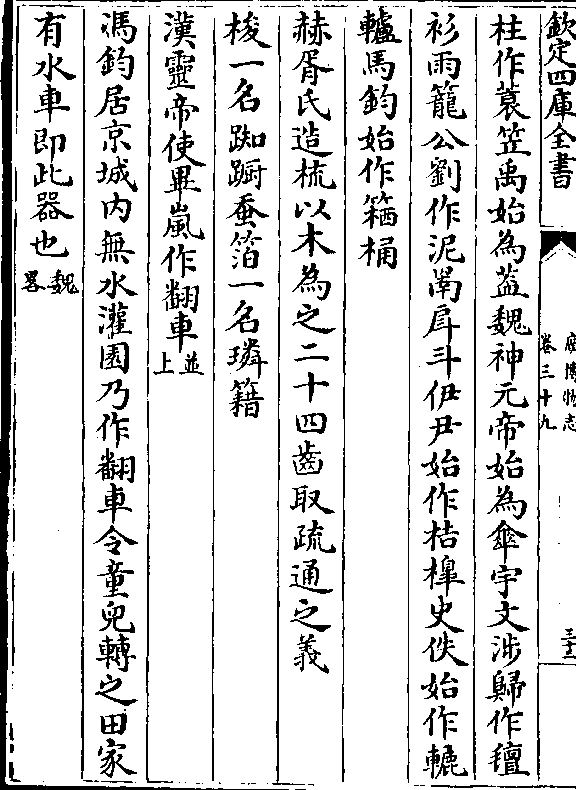 欽定四庫全書
廣博物志
卷三十九
三十二
柱作蓑笠禹始為蓋魏神元帝始為傘宇文涉歸作氊
衫雨籠公劉作泥閘戽斗伊尹始作桔橰史佚始作轆
轤馬鈞始作桶
赫胥氏造梳以木為之二十四齒取疏通之義
梭一名踟躕蚕箔一名璘籍
漢靈帝使畢嵐作翻車並上
馮鈞居京城内無水灌園乃作翻車令童兒轉之田家
有水車即此器也魏畧